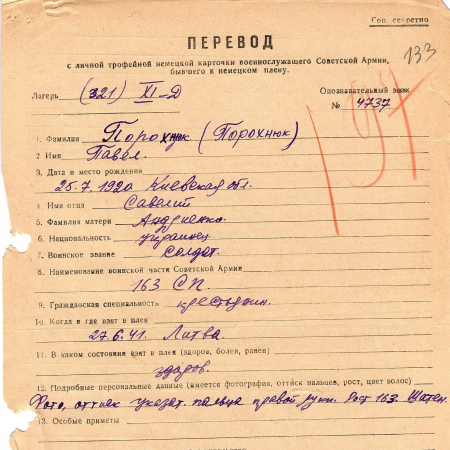 Сов. секретно
133
ПЕРЕВОД
с личной трофейной немецкой карточки военнослужащего Советской Армии,
бывшего в немецком плену.
Лагерь (321) XI-D
Опознавательный знак
№ 4737
1. Фамилия Порохнюк (Порохнюк)
2 Имя Павел.
3. Дата и место рождения
25.7.1920 Киевская обл.
4. Имя отца Савелий
5. Фамилия матери Андриенко.
6. Национальность украинец
7. Воинское звание солдат.
8. Наименование воинской части Советской Армии
163 СП.
9. Гражданская специальность крестьянин.
10. Когда и где взят в плен
27.6.41. Литва.
11. В каком состоянии взят в плен (здоров, болен, ранен)
здоров.
12. Подробные персональные данные (имеется фотография, оттиск пальцев, рост, цвет волос)
Фото, оттиск указат. пальца правой руки. Рост 163. Шатен.
13. Особые приметы